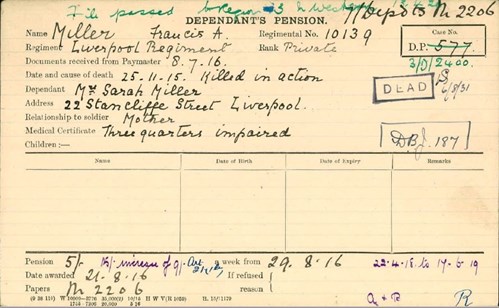 File passed to Region 3 N. West
11 Depots M 2206
DEPENDANT'S PENSION.
Name Miller Francis A. Regimental No. 10139
Case No.
Regiment Liverpool Regiment Rank Private
D.P. 577
Documents received from Paymaster 8.7.16.
3/D/2400.
Date and cause of death 25.11.15. Killed in action
DEAD
6/8/31
Dependant Mrs. Sarah Miller
Address 22 Stancliffe Street Liverpool.
Relationship to soldier Mother
Medical Certificate Three quarters impaired
187
Children:—
Name Date of Birth Date of Expiry Remarks
Pension 5/- 15/- increase of 9/- a week from 29.8.16 22.4.18 to 17.6.19
Date awarded 21.8.16 If refused
Papers M 2206 reason
R